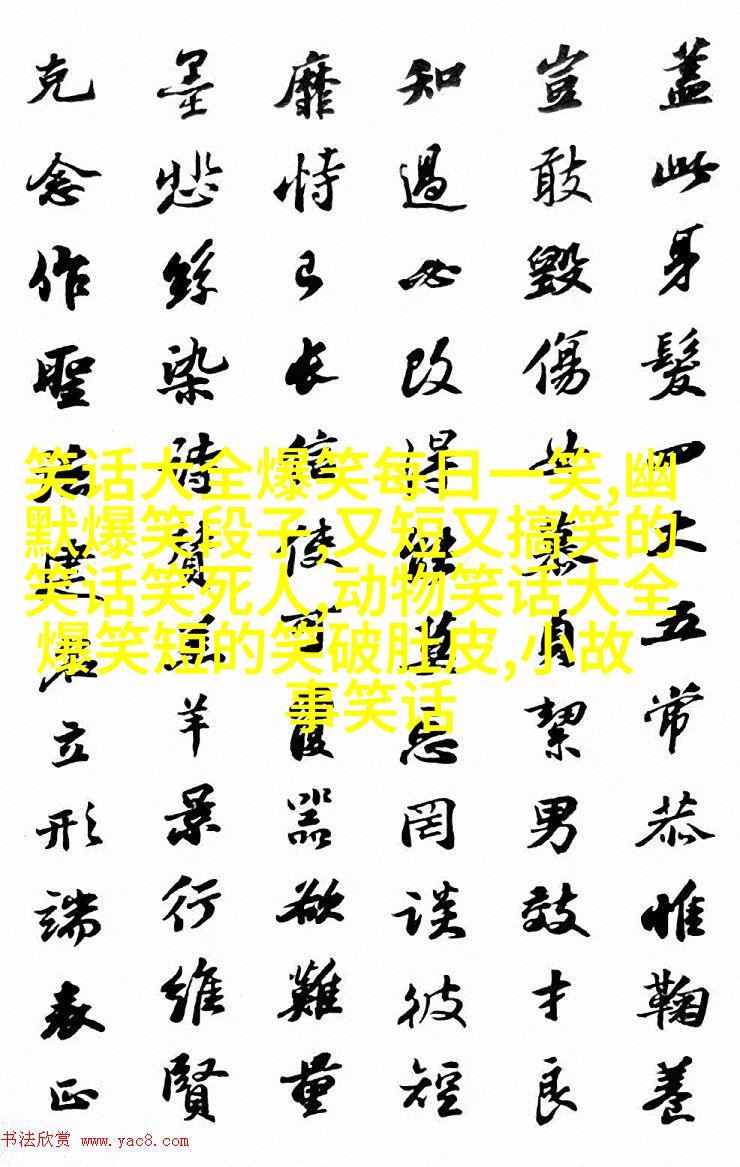 蓋此身髮四大五常恭惟鞠養
豈敢毀傷女慕貞絜男效才良
知過必改得能莫忘罔談彼短
靡恃己長信使可覆器欲難量
墨悲絲染詩贊羔羊景行維賢
克念作聖德建名立形端表正
笑话大全爆笑每日一笑,幽
默爆笑段子,又短又搞笑的
笑话笑死人,动物笑话大全
爆笑短的笑破肚皮,小故
事笑话
书法欣赏 www.yac8.com